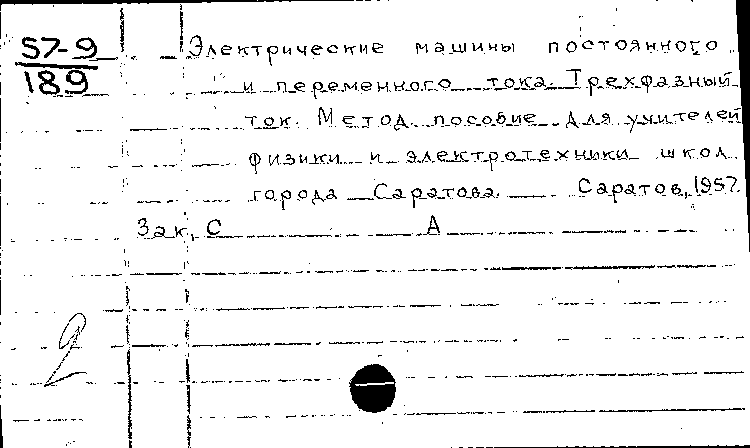 57-9
189
Электрические машины постоянного
и переменного тока. Трехфазный
ток. Метод. пособие для учителей
физики и электротехники школ
города Саратова. Саратов, 1957.
Зак. С А
2